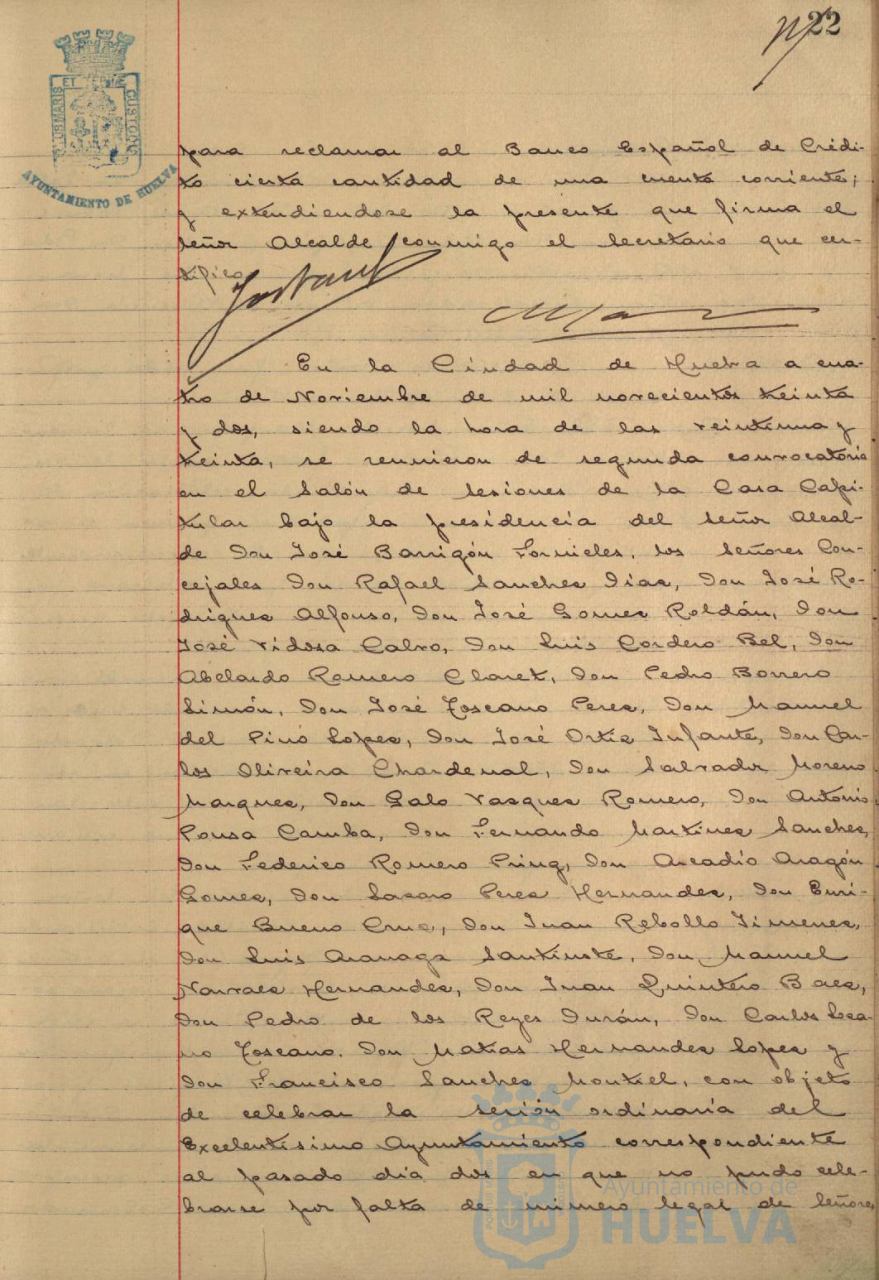 22
PORTUS MARIS ET TERRE CUSTODIA
AYUNTAMIENTO DE HUELVA
para reclamar al Banco Español de Crédi-
to cierta cantidad de una cuenta corriente;
y extendiendose la presente que firma el
señor Alcalde conmigo el Secretario que cer-
tifico
En la Ciudad de Huelva a cua-
tro de Noviembre de mil novecientos treinta
y dos, siendo la hora de las veintiuna y
treinta, se reunieron de segunda convocatoria
en el Salón de Sesiones de la Casa Capi-
tular bajo la presidencia del señor Alcal-
de Don José Barrigón Fornieles, los señores Con-
cejales Don Rafael Sanchez Diaz, Don José Ro-
driguez Alfonso, Don José Gomez Roldán, Don
José Vidosa Calvo, Don Luis Cordero Bel, Don
Abelardo Romero Claret, Don Pedro Borrero
Limón, Don José Toscano Perez, Don Manuel
del Pino Lopez, Don José Ortiz Infante, Don Car-
los Oliveira Chardenal, Don Salvador Moreno
Marquez, Don Galo Vazquez Romero, Don Antonio
Pousa Camba, Don Fernando Martinez Sanchez,
Don Federico Romero Pring, Don Arcadio Aragón
Gomez, Don Lazaro Perez Hernandez, Don Enri-
que Bueno Cruz, Don Juan Rebollo Jimenez,
Don Luis Manuel
Narvaez Hernandez, Don Juan Quintero Baez,
Don Pedro de los Reyes Durán, Don Carlos Sea-
no Toscano, Don Matias Hernandez Lopez y
Don Francisco Sanchez Montiel, con objeto
de celebrar la sesión ordinaria del
Excelentísimo Ayuntamiento correspondiente
al pasado dia dos en que no pudo cele-
brarse por falta de número legal de Señores
Ayuntamiento de
HUELVA